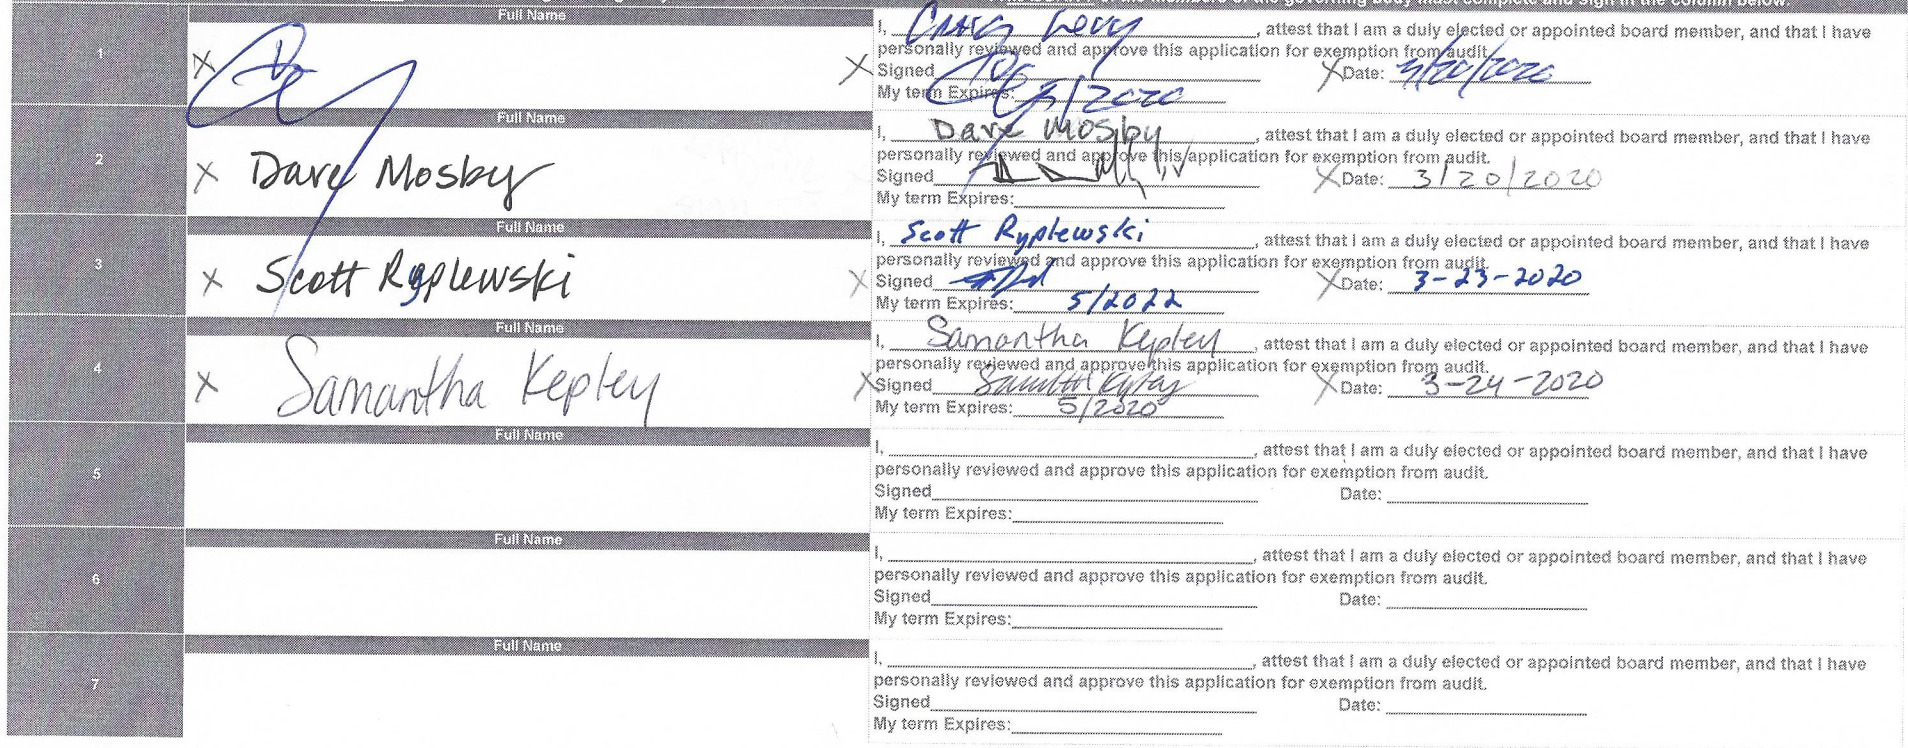 of the members of the governing body must complete and sign in the column below.
Full Name
1
X
I, Craig Levy, attest that I am a duly elected or appointed board member, and that I have
personally reviewed and approve this application for exemption from audit.
X Signed X Date: 3/20/2020
My term Expires: 5/2020
Full Name
2
X Dave Mosby
I, Dave Mosby, attest that I am a duly elected or appointed board member, and that I have
personally reviewed and approve this application for exemption from audit.
Signed X Date: 3/20/2020
My term Expires:
Full Name
3
X Scott Ryplewski
I, Scott Ryplewski, attest that I am a duly elected or appointed board member, and that I have
personally reviewed and approve this application for exemption from audit.
X Signed X Date: 3-23-2020
My term Expires: 5/2022
Full Name
4
X Samantha Kepley
I, Samantha Kepley, attest that I am a duly elected or appointed board member, and that I have
personally reviewed and approve this application for exemption from audit.
X Signed Samantha Kepley X Date: 3-24-2020
My term Expires: 5/2020
Full Name
5
I, , attest that I am a duly elected or appointed board member, and that I have
personally reviewed and approve this application for exemption from audit.
Signed Date:
My term Expires:
Full Name
6
I, , attest that I am a duly elected or appointed board member, and that I have
personally reviewed and approve this application for exemption from audit.
Signed Date:
My term Expires:
Full Name
7
I, , attest that I am a duly elected or appointed board member, and that I have
personally reviewed and approve this application for exemption from audit.
Signed Date:
My term Expires: